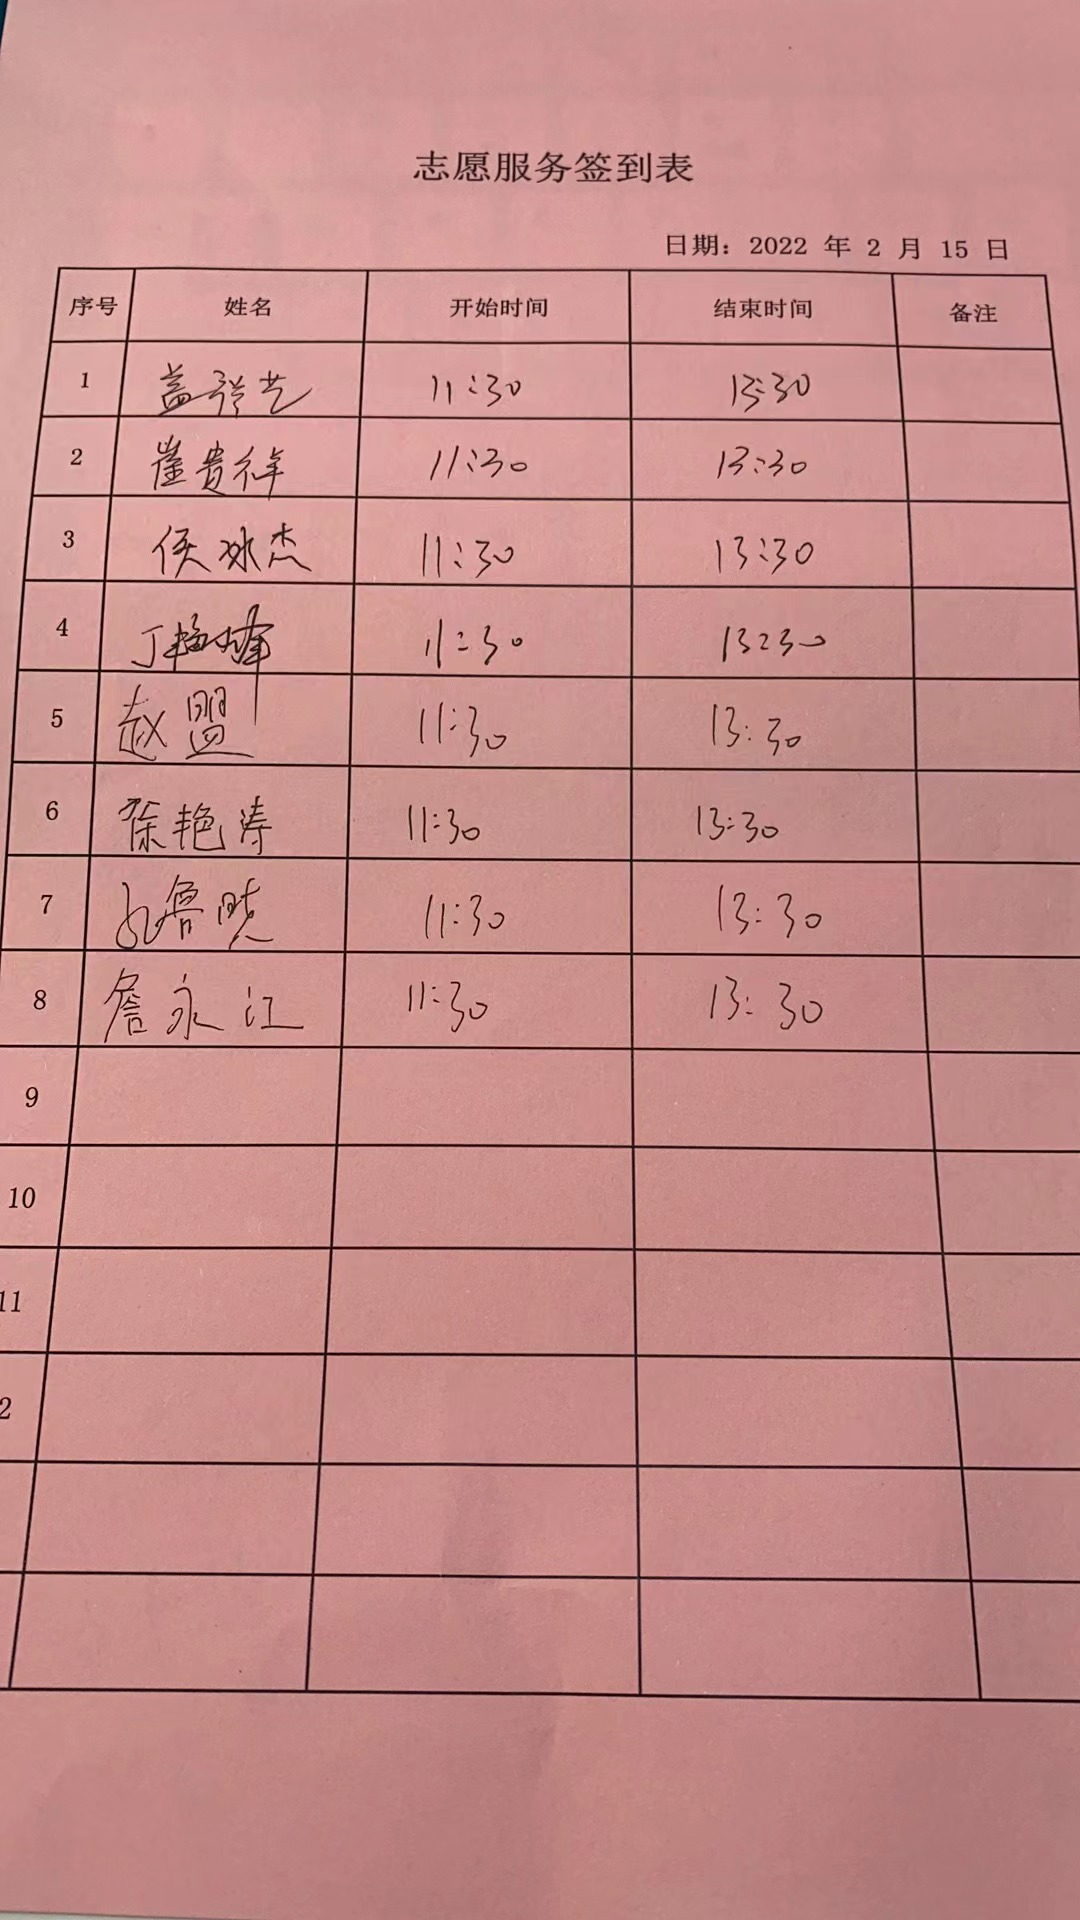 志愿服务签到表
日期：2022 年 2 月 15 日
序号 姓名 开始时间 结束时间 备注
1 盖 艺 11:30 13:30
2 崔贵祥 11:30 13:30
3 侯冰杰 11:30 13:30
4 丁艳峰 11:30 13:30
5 赵盟 11:30 13:30
6 徐艳涛 11:30 13:30
7 孔鲁晓 11:30 13:30
8 詹永江 11:30 13:30
9
10
11
2